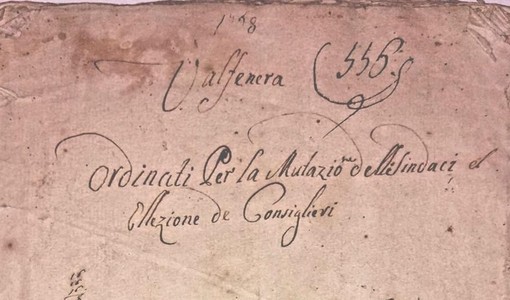 Valfenera 556.
Ordinati Per la Mutazio.ne delli Sindaci et
Ellezione de Consiglieri